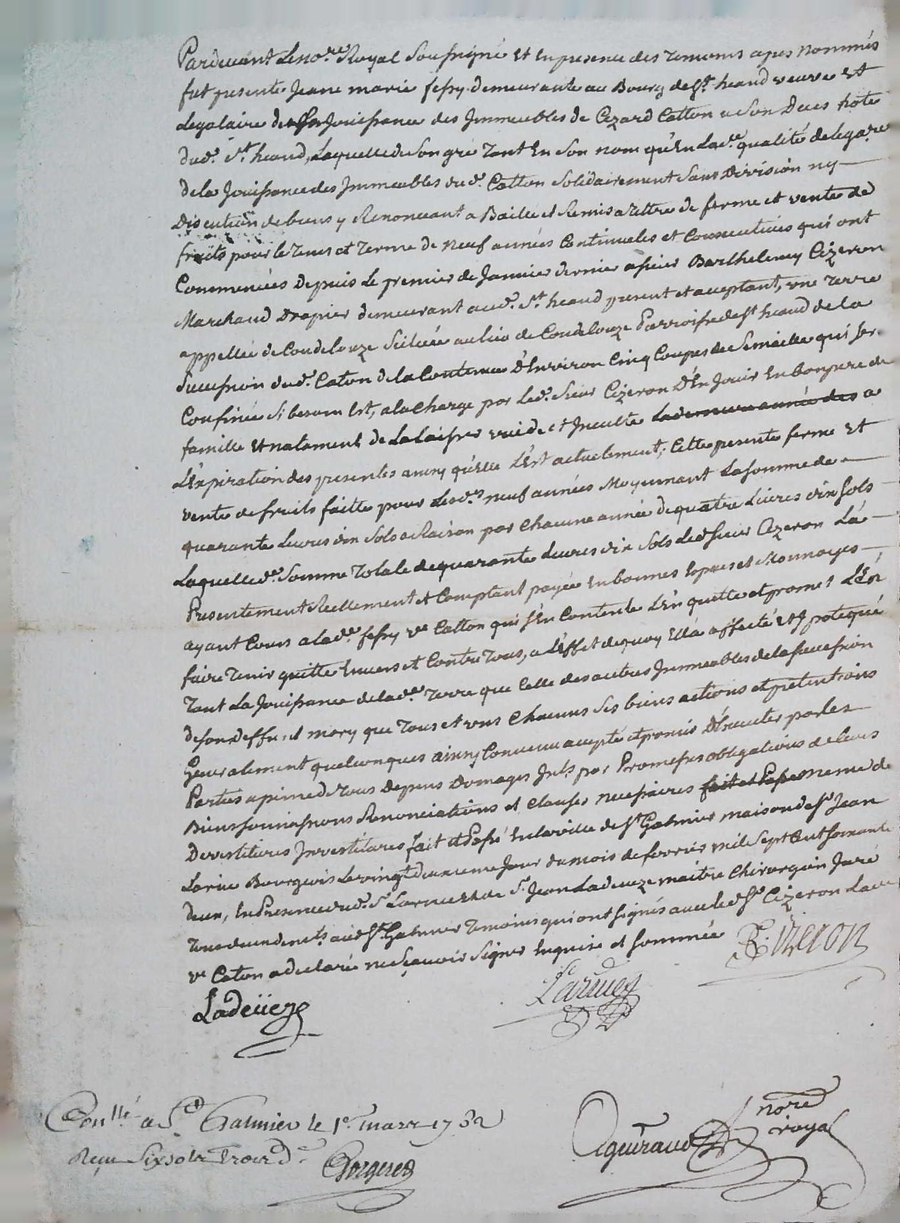 Pardevant Le no.re Royal Soussigné et En presence des Temoins apres Nommés
fut presente Jeane marie fessy demeurante au Bourg de St. heand veuve et
Legataire de la Jouissance des Immeubles de Cezard Catton a Son Deces hote
dud. St. heand, Laquelle de Son gré Tant En Son nom qu'En Lad.e qualité de legat.re
de la Jouissance des Immeubles dud. Catton Solidairement Sans Division ny
Discution de biens y Renoncant a Baille et Remis a tittre de ferme et vente de
fruits pour le Tems et Terme de Neuf années Continuelles et Consecutives qui ont
Commencées Depuis Le premier de Janvier dernier a sieur Barthelemy Cizeron
Marchand Drapier demeurant aud. St. heand present et acceptant, une Terre
appellée de Coudelouze Scituée au lieu de Coudelouze Parroisse de St. heand de la
Succession dud. Caton de la Contenue D'Environ Cinq Coupes de Semaille qui ser
Confinée Si besoin Est, a la Charge par Led. Sieur Cizeron D'En Jouir En bon pere de
famille Et natament de La Laisser vuide et Inculte La derniere année des a
L'Expiration des presentes ainsy qu'elle L'Est actuellement; Cette presente ferme et
vente de fruits faitte pour Lesd.s neuf années Moyennant La Somme de
quarante Livres dix Sols a Raison par Chacune année de quatre Livres dix Sols
Laquelle d. Somme Totale de quarante Livres dix Sols Led. Sieur Cizeron La
Presentement Reellement et Comptant payée En bonnes Especes et Monnoyes
ayant Cours a lad.e fessy v.e Catton qui s'En Contente L'En quitte et promet L'En
faire Tenir quitte Envers et Contre Tous, a L'Effet de quoy Ella affecté et Ypotequé
Tant La Jouissance de lad.e Terre que Celle des autres Immeubles de la Succession
de son deffunt mary que Tous et uns Chacuns Ses biens actions et pretentions
Generalement quelconques ainsy Convenu accepté et promis D'Executer par les
Parties a peine de Tous Depens Domages Jnts par Promesses obligations de leurs
Biens Soumissions Renonciations et Clauses necessaires fait et Passé meme de
Devestitures Investitures fait et Passé En la ville de St. Galmier maison de Sr. Jean
Larüe Bourgeois Le vingt deuxieme Jour du mois de fevrier mil Sept Cent Soixante
deux, En Presence dud. Sr. Larue et de Sr. Jean Ladeveze maitre Chirurgien Juré
Tous deux demts. aud. St. Galmier Temoins qui ont Signés avec led. Sr. Cizeron Lad.e
v.e Caton a declaré ne Sçavoir Signer Enquise et Sommée
Cizeron
Ladevèze
Larüe
Con.llé a St. Galmier le 1er mars 1762
Reçu Six sols Trois d.
nore
royal